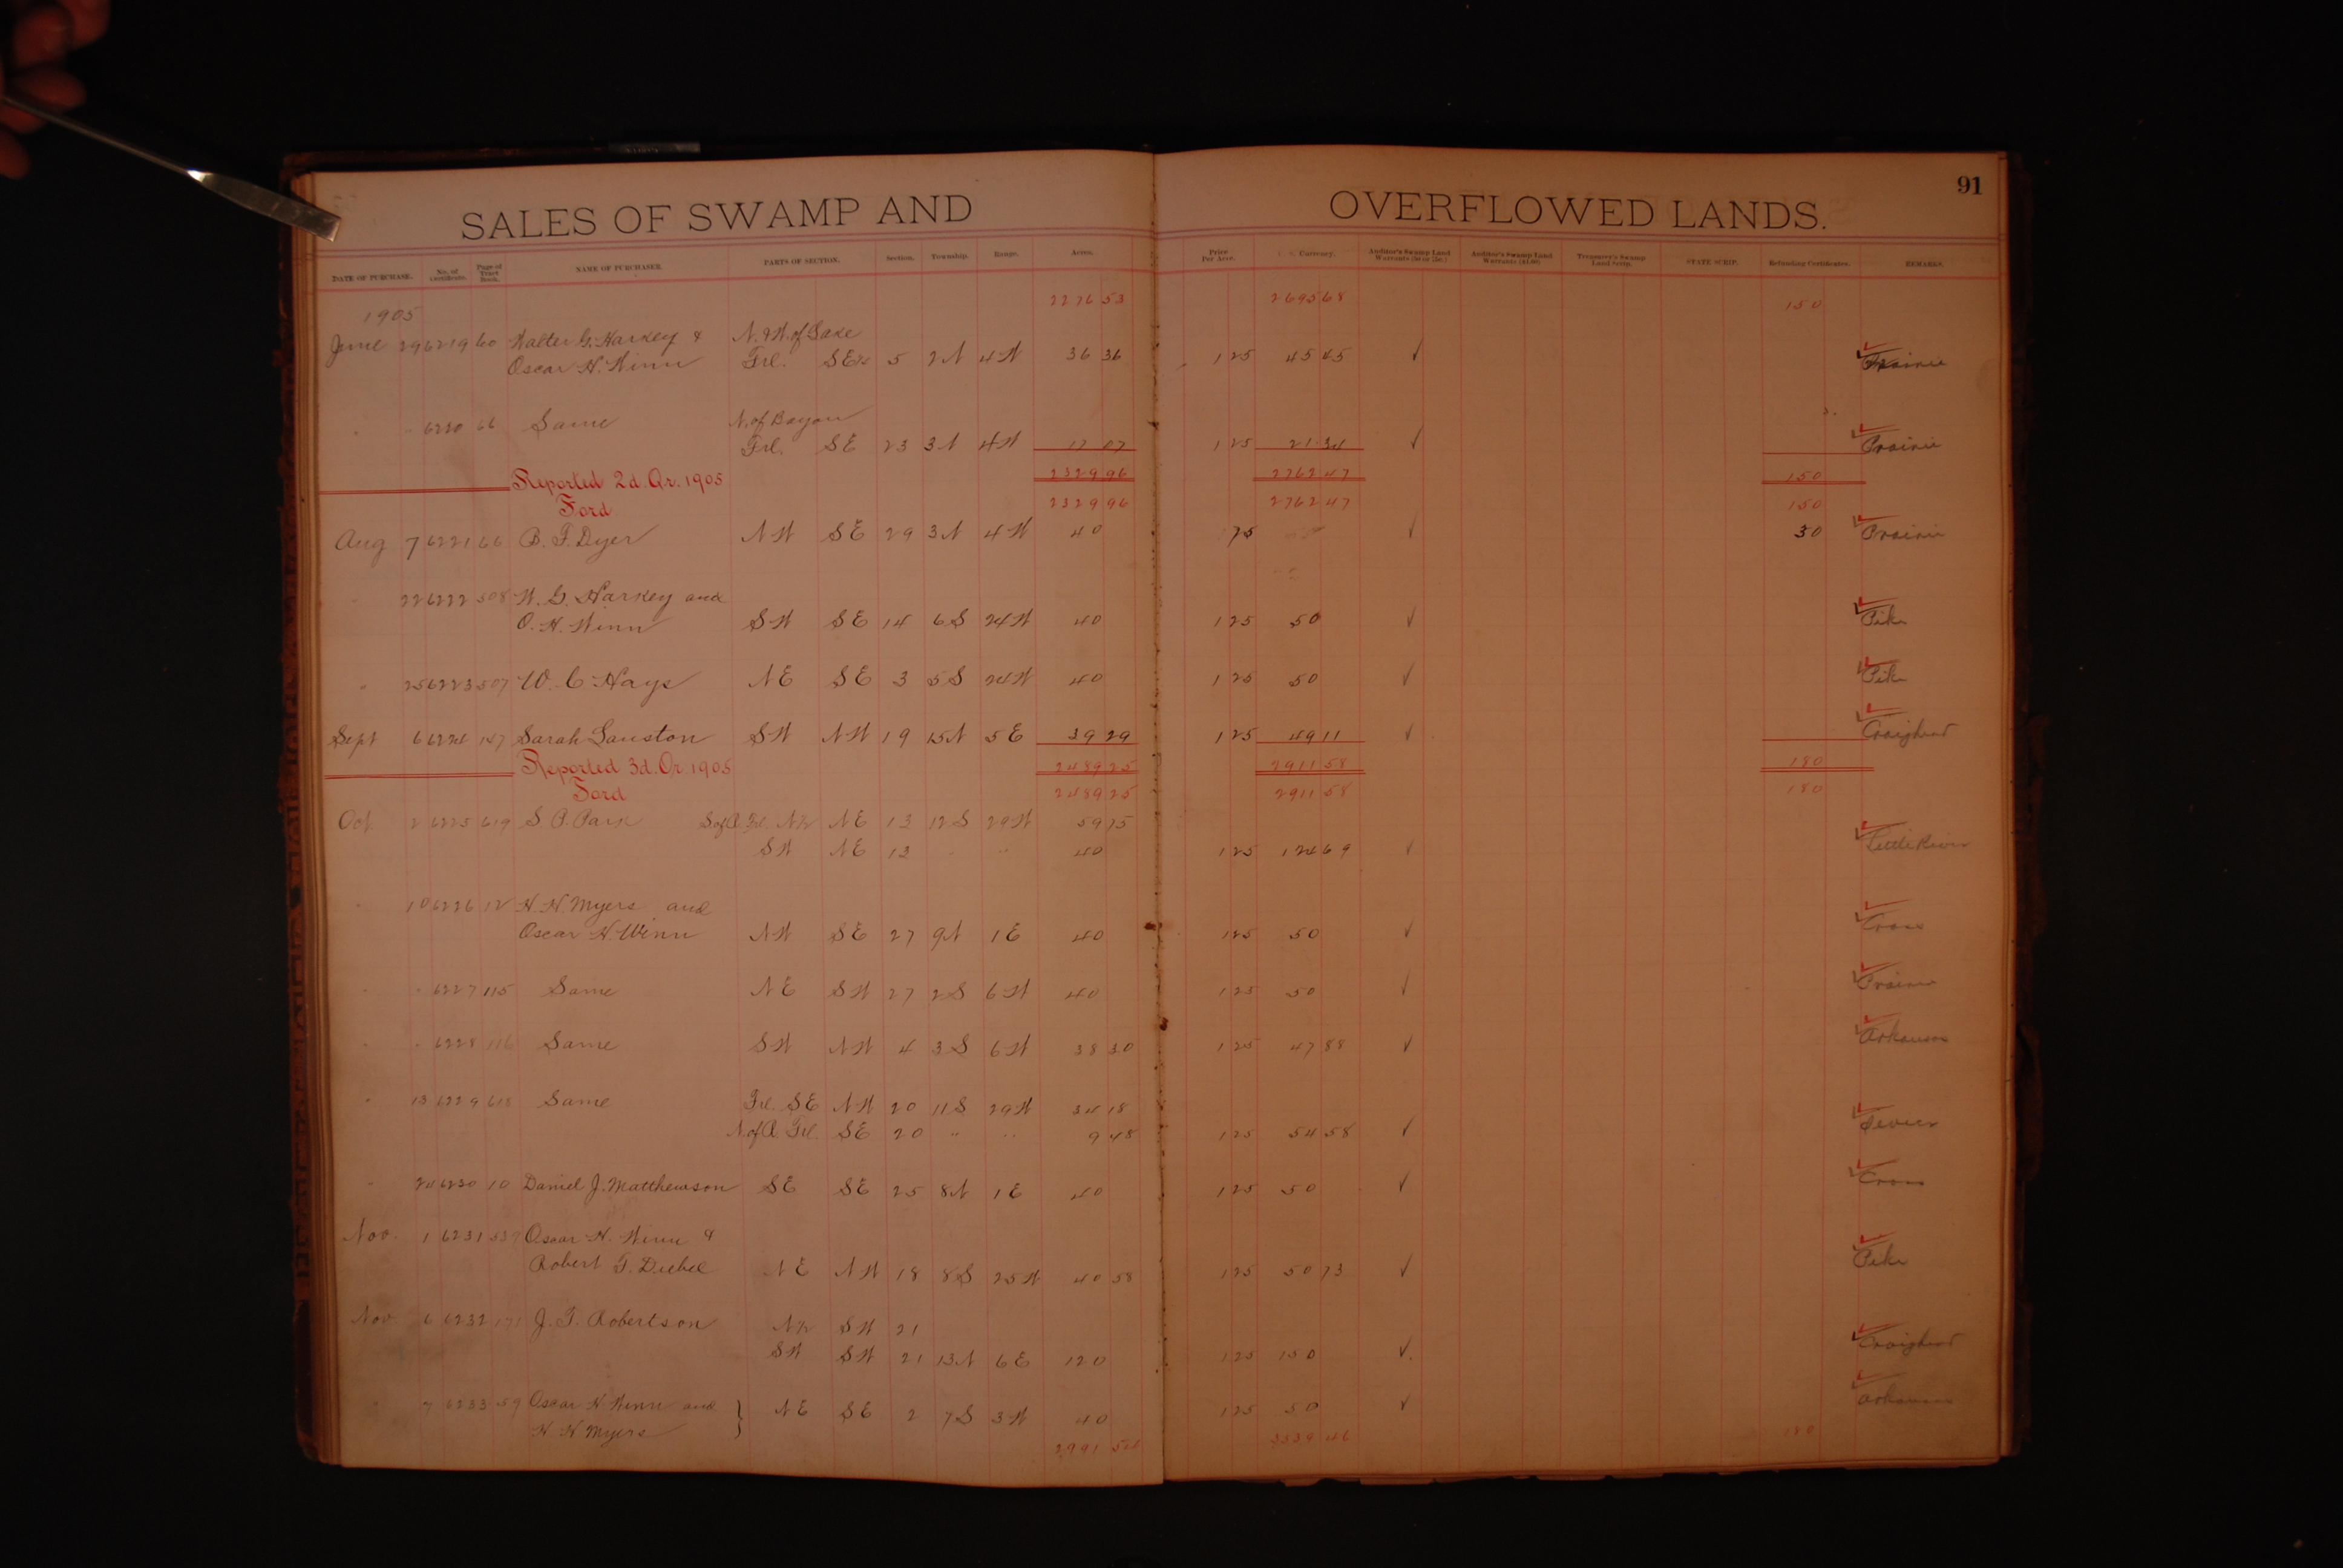 91
SALES OF SWAMP AND OVERFLOWED LANDS.
DATE OF PURCHASE. No. of Certificate. Page of Tract Book. NAME OF PURCHASER. PARTS OF SECTION. Section. Township. Range. Acres. Price Per Acre. U. S. Currency. Auditor's Swamp Land Warrants Auditor's Swamp Land Warrants Treasurer's Swamp Land Scrip. STATE SCRIP. Refunding Certificates. REMARKS.
2276 53 2695 68 150
1905
June 29 6219 60 Walter G. Harkey & N. & W. of Lake
Oscar H. Winn Frl. SE¼ 5 2N 4W 36 36 1 25 45 45 ✓ Prairie
" " 6220 66 Same N. of Bayou
Frl. SE 23 3N 4W 17 07 1 25 21 34 ✓ Prairie
Reported 2d. Qr. 1905 2329 96 2762 47 150
Ford 2329 96 2762 47 150
Aug 7 6221 66 B. F. Dyer NW SE 29 3N 4W 40 75 ✓ 30 Prairie
" 22 6222 508 W. G. Harkey and
O. H. Winn SW SE 14 6S 24W 40 1 25 50 ✓ Pike
" 25 6223 507 W. C. Hays NE SE 3 5S 24W 40 1 25 50 ✓ Pike
Sept 6 6224 147 Sarah Lauston SW NW 19 15N 5E 39 29 1 25 49 11 ✓ Craighead
Reported 3d. Qr. 1905 2489 25 2911 58 180
Ford 2489 25 2911 58 180
Oct. 2 6225 619 S. P. Park Frl. N½ NE 13 12S 29W 59 75
SW NE 13 " " 40 1 25 124 69 ✓ Little River
" 10 6226 12 H. H. Myers and
Oscar H. Winn NW SE 27 9N 1E 40 1 25 50 ✓ Cross
" " 6227 115 Same NE SW 27 2S 6W 40 1 25 50 ✓ Prairie
" " 6228 116 Same SW NW 4 3S 6W 38 30 1 25 47 88 ✓ Arkansas
" 13 6229 618 Same Frl. SE NW 20 11S 29W 34 18
Frl. SE 20 " " 9 48 1 25 54 58 ✓ Sevier
" 24 6230 10 Daniel J. Matthewson SE SE 25 8N 1E 40 1 25 50 ✓ Cross
Nov. 1 6231 537 Oscar H. Winn &
Robert F. NE NW 18 8S 25W 40 58 1 25 50 73 ✓ Pike
Nov 6 6232 171 J. F. Robertson N½ SW 21
SW SW 21 13N 6E 120 1 25 150 ✓ Craighead
" 7 6233 59 Oscar H. Winn and } NE SE 2 7S 3W 40 1 25 50 ✓ Arkansas
H H Myers
2991 54 3539 46 180